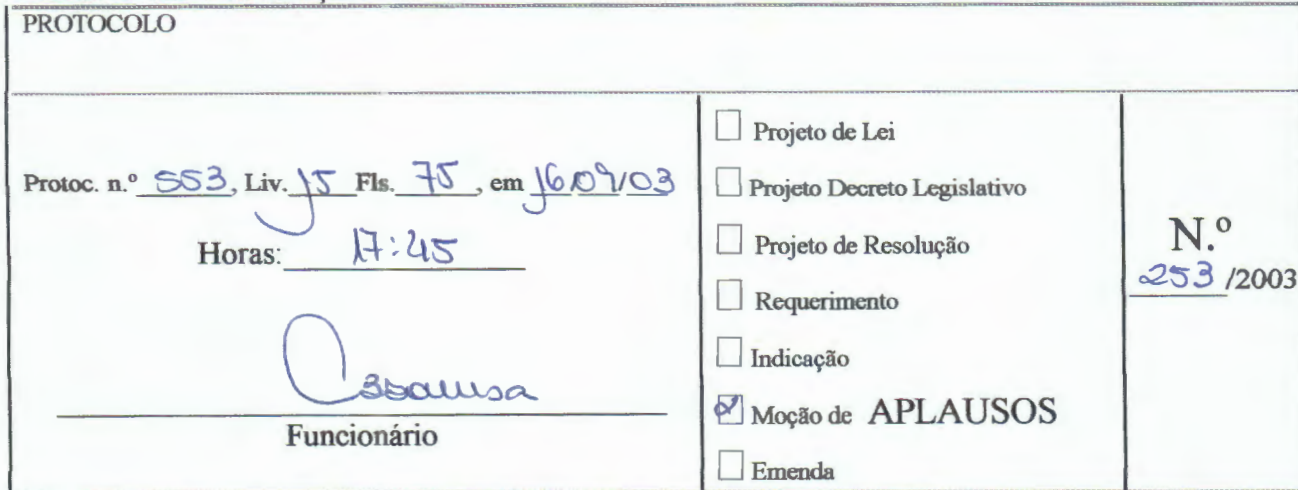 PROTOCOLO
Protoc. n.º 553, Liv. 15 Fls. 75, em 16/09/03
Horas: 17:45
Funcionário
Projeto de Lei
Projeto Decreto Legislativo
Projeto de Resolução
Requerimento
Indicação
Moção de APLAUSOS
Emenda
N.º
253/2003